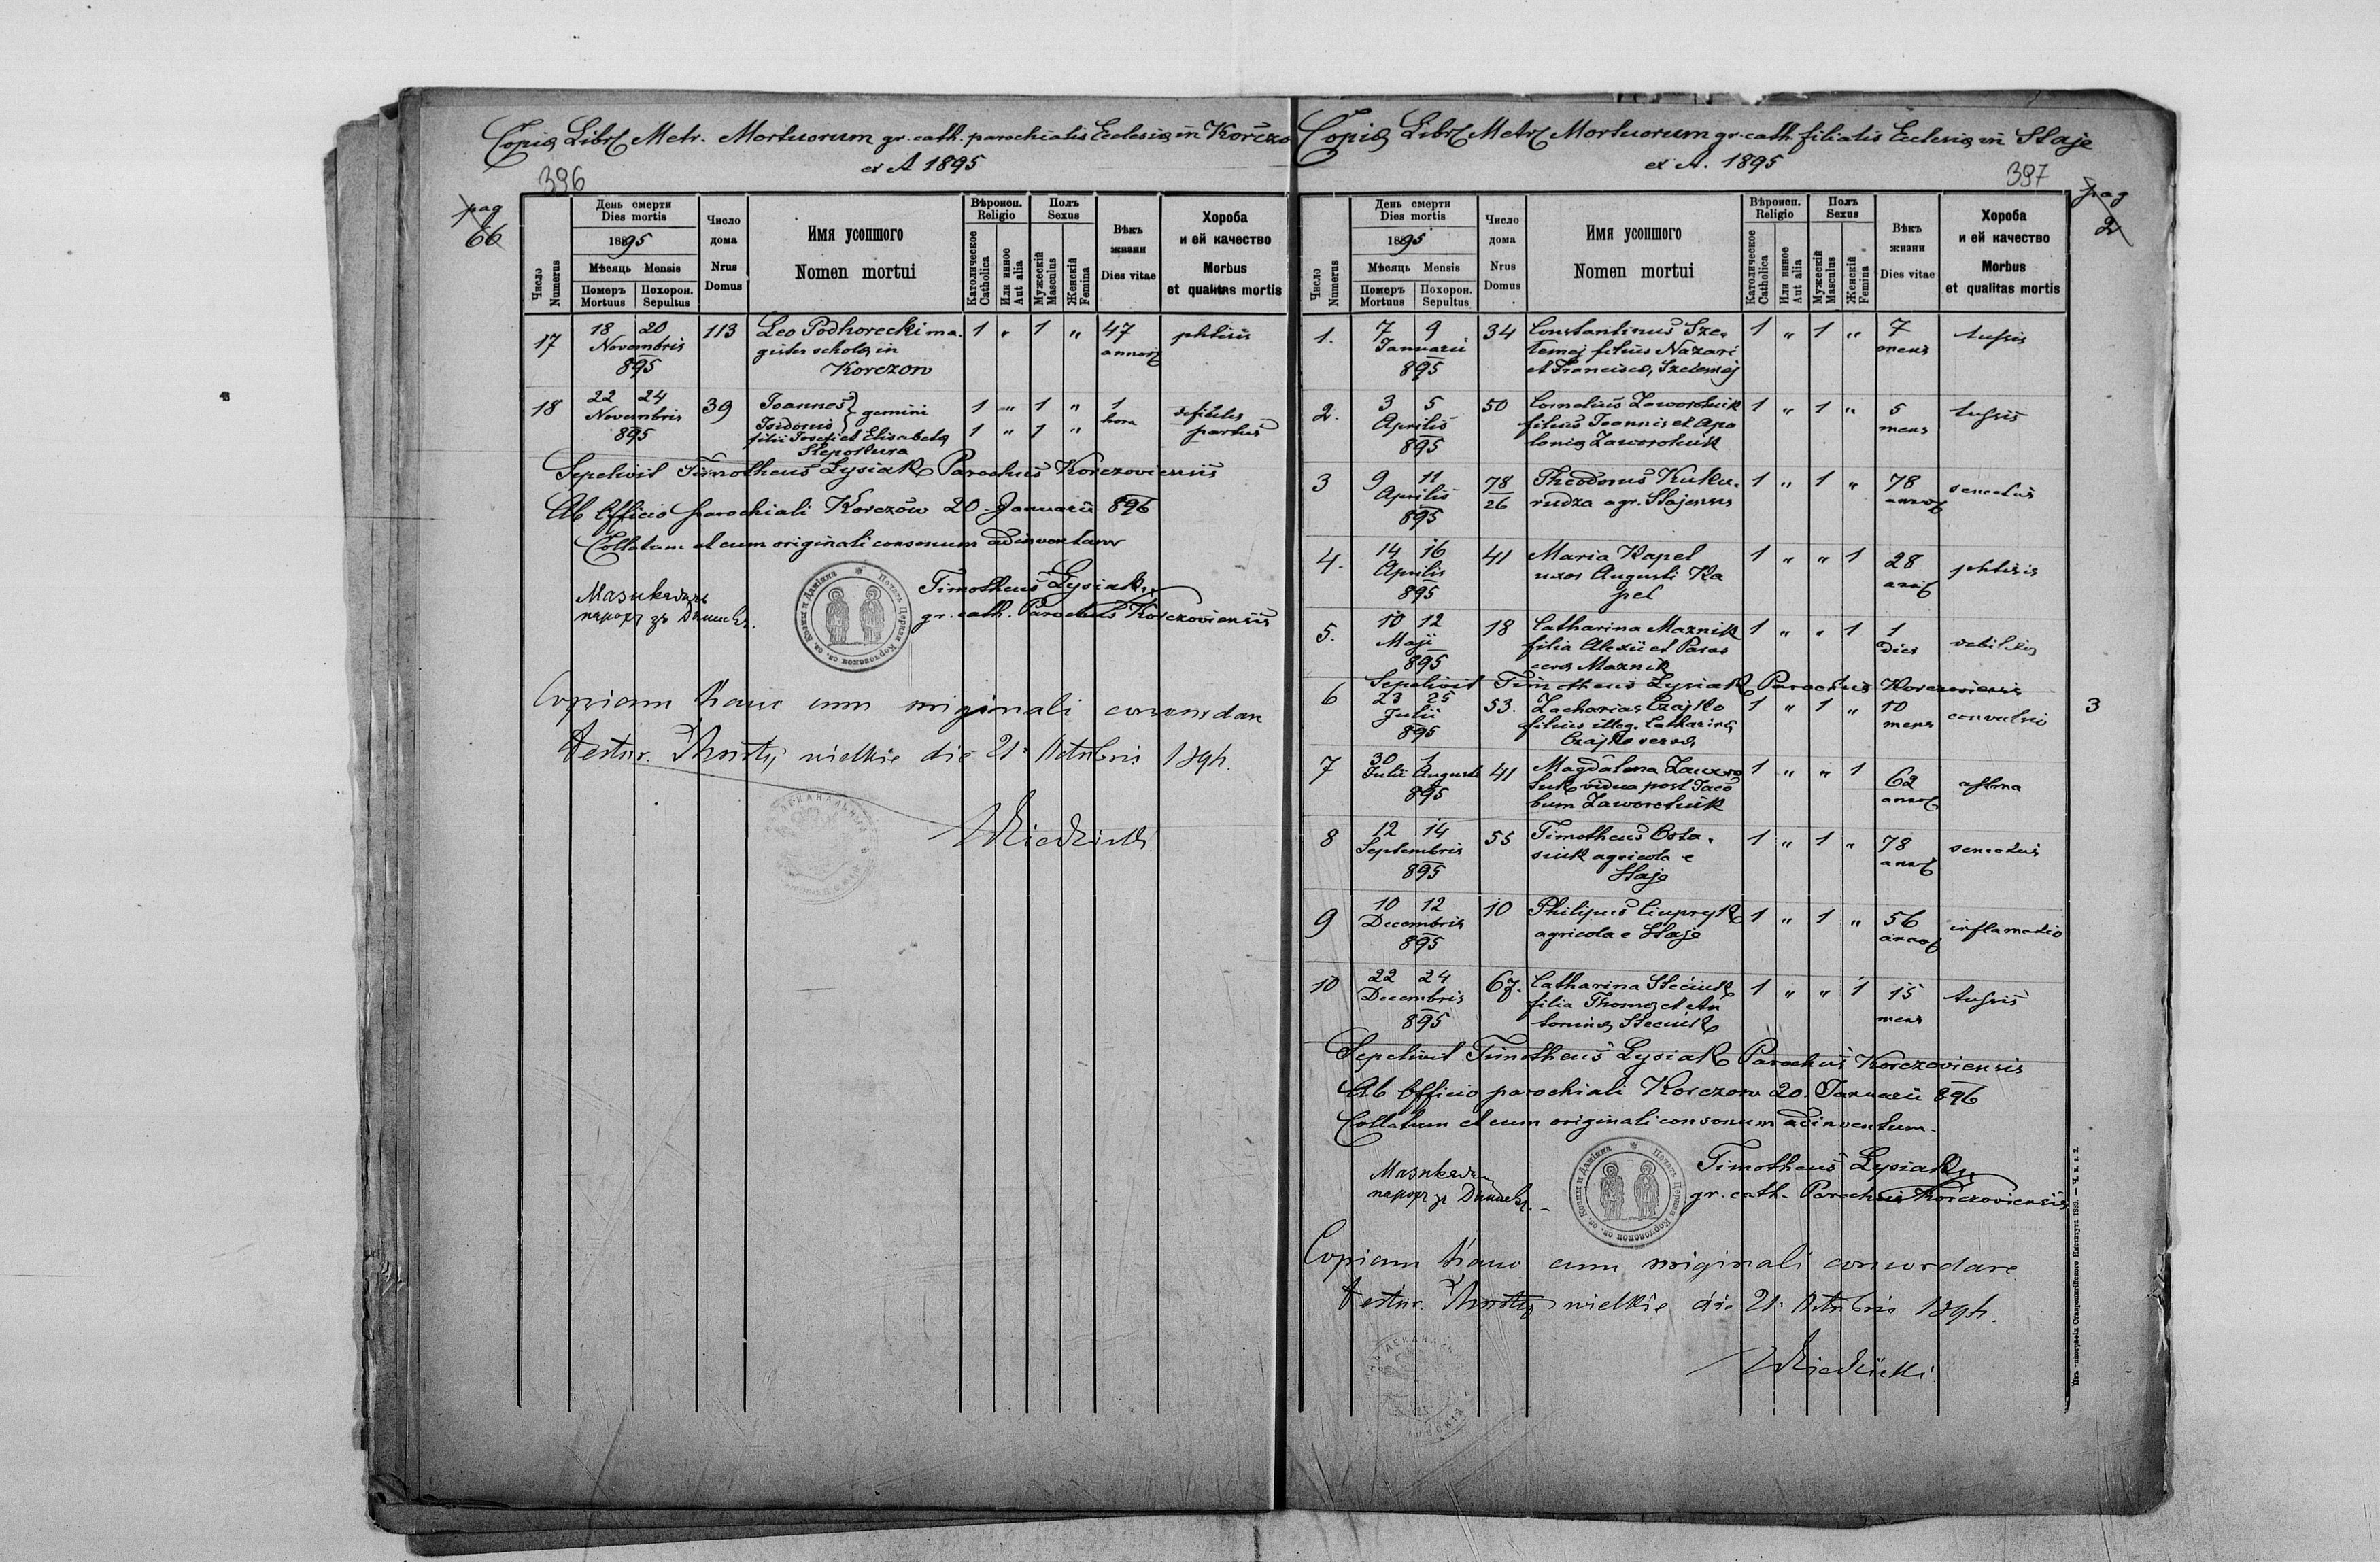 Copia Libri Metr. Mortuorum gr. cath. parochialis Ecclesia in Korczow
ex A 1895
396
pag
66
Число
Numerus
День смерти
Dies mortis
1895
Мѣсяць Mensis
Померъ
Mortuus
Похорон.
Sepultus
Число
дома
Nrus
Domus
Имя усопшого
Nomen mortui
Вѣроиси.
Religio
Католическое
Catholica
Или инное
Aut alia
Полъ
Sexus
Мужескій
Masculus
Женскій
Femina
Вѣкъ
жизни
Dies vitae
Хороба
и ей качество
Morbus
et qualitas mortis
17 18 20 113 Leo Podhorecki ma. 1 " 1 " 47 phtisis
Novembris gister schola in annor
895 Korczow
18 22 24 39 Joannes } gemini 1 " 1 " 1 debilis
Novembris Isidorus 1 " 1 " hora partus
895 filii Josefi et Elisabeta
Sepelivit Timotheus Lysiak Parochus Korczoviensis
Ab Officio parochiali Korczów 20 Januarii 896
Collatum et cum originali consonum adinventum
Timotheus Lysiak
gr. cath. Parochus Korczoviensis
Copiam hanc cum originali concordare
testur. wielkie die 21 Octobris 1896.
Copia Libri Metr Mortuorum gr. cath. filialis Ecclesia in Staje
ex A. 1895
397
pag
2
Число
Numerus
День смерти
Dies mortis
1895
Мѣсяць Mensis
Померъ
Mortuus
Похорон.
Sepultus
Число
дома
Nrus
Domus
Имя усопшого
Nomen mortui
Вѣроиси.
Religio
Католическое
Catholica
Или инное
Aut alia
Полъ
Sexus
Мужескій
Masculus
Женскій
Femina
Вѣкъ
жизни
Dies vitae
Хороба
и ей качество
Morbus
et qualitas mortis
1. 7 9 34 Constantinus Sze= 1 " 1 " 7 tussis
Januarii lemej filius Nazari mens
895 et Francisca Szelemej
2. 3 5 50 Cornelius Zaworotiuk 1 " 1 " 5 tussis
Aprilis filius Joannis et Apo mens
895 lonia Zaworotiuk
3 9 11 78/26 Theodorus Kuku= 1 " 1 " 78 senectus
Aprilis rudza agr. Stajensis annor
895
4. 14 16 41 Maria Kapel 1 " " 1 28 phtisis
Aprilis uxor Augusti Ka
895 pel
5. 10 12 18 Catharina Maznik 1 " " 1 1 debilitas
Maji filia Alexii et Paras dies
895 ceva Maznik
Sepelivit Timotheus Lysiak Parochus Korczoviensis
6 23 25 53. Zacharias Czajko 1 " 1 " 10 convulsio
Julii filius illeg. Catharina mens
895 Czajko
3
7 30 1 41 Magdalena Zaworo 1 " " 1 62 astma
Julii Augusti tiuk vidua post Jaco annor
895 bum Zaworotiuk
8 12 14 55 Timotheus Osta= 1 " 1 " 78 senectus
Septembris siuk agricola e annor
895 Staje
9 10 12 10 Philipus Ciupryk 1 " 1 " 56 inflamatio
Decembris agricola e Staje annor
895
10 22 24 67. Catharina Steciuk 1 " " 1 15 tussis
Decembris filia Thoma et An mens
895 tonina Steciuk
Sepelivit Timotheus Lysiak Parochus Korczoviensis
Ab Officio parochiali Korczow 20. Januarii 896
Collatum et cum originali consonum adinventum.
Timotheus Lysiak
gr. cath. Parochus Korczoviensis
Copiam hanc cum originali concordare
testur. wielkie die 21 Octobris 1896.